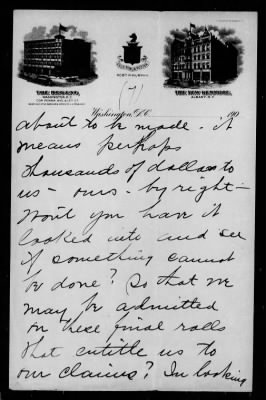 THE REGENT,
WASHINGTON, D.C.
COR. PENNA. AVE. & 15TH ST.
THE NEW KENMORE,
ALBANY, N.Y.
(7)
Washington, D.C. 190
about to be made. it
means perhaps
thousands of dollars to
us - ours - by right -
Won't you have it
looked into and see
if something cannot
be done? So that we
may be admitted
on these final rolls
that entitle us to
our claims? In looking